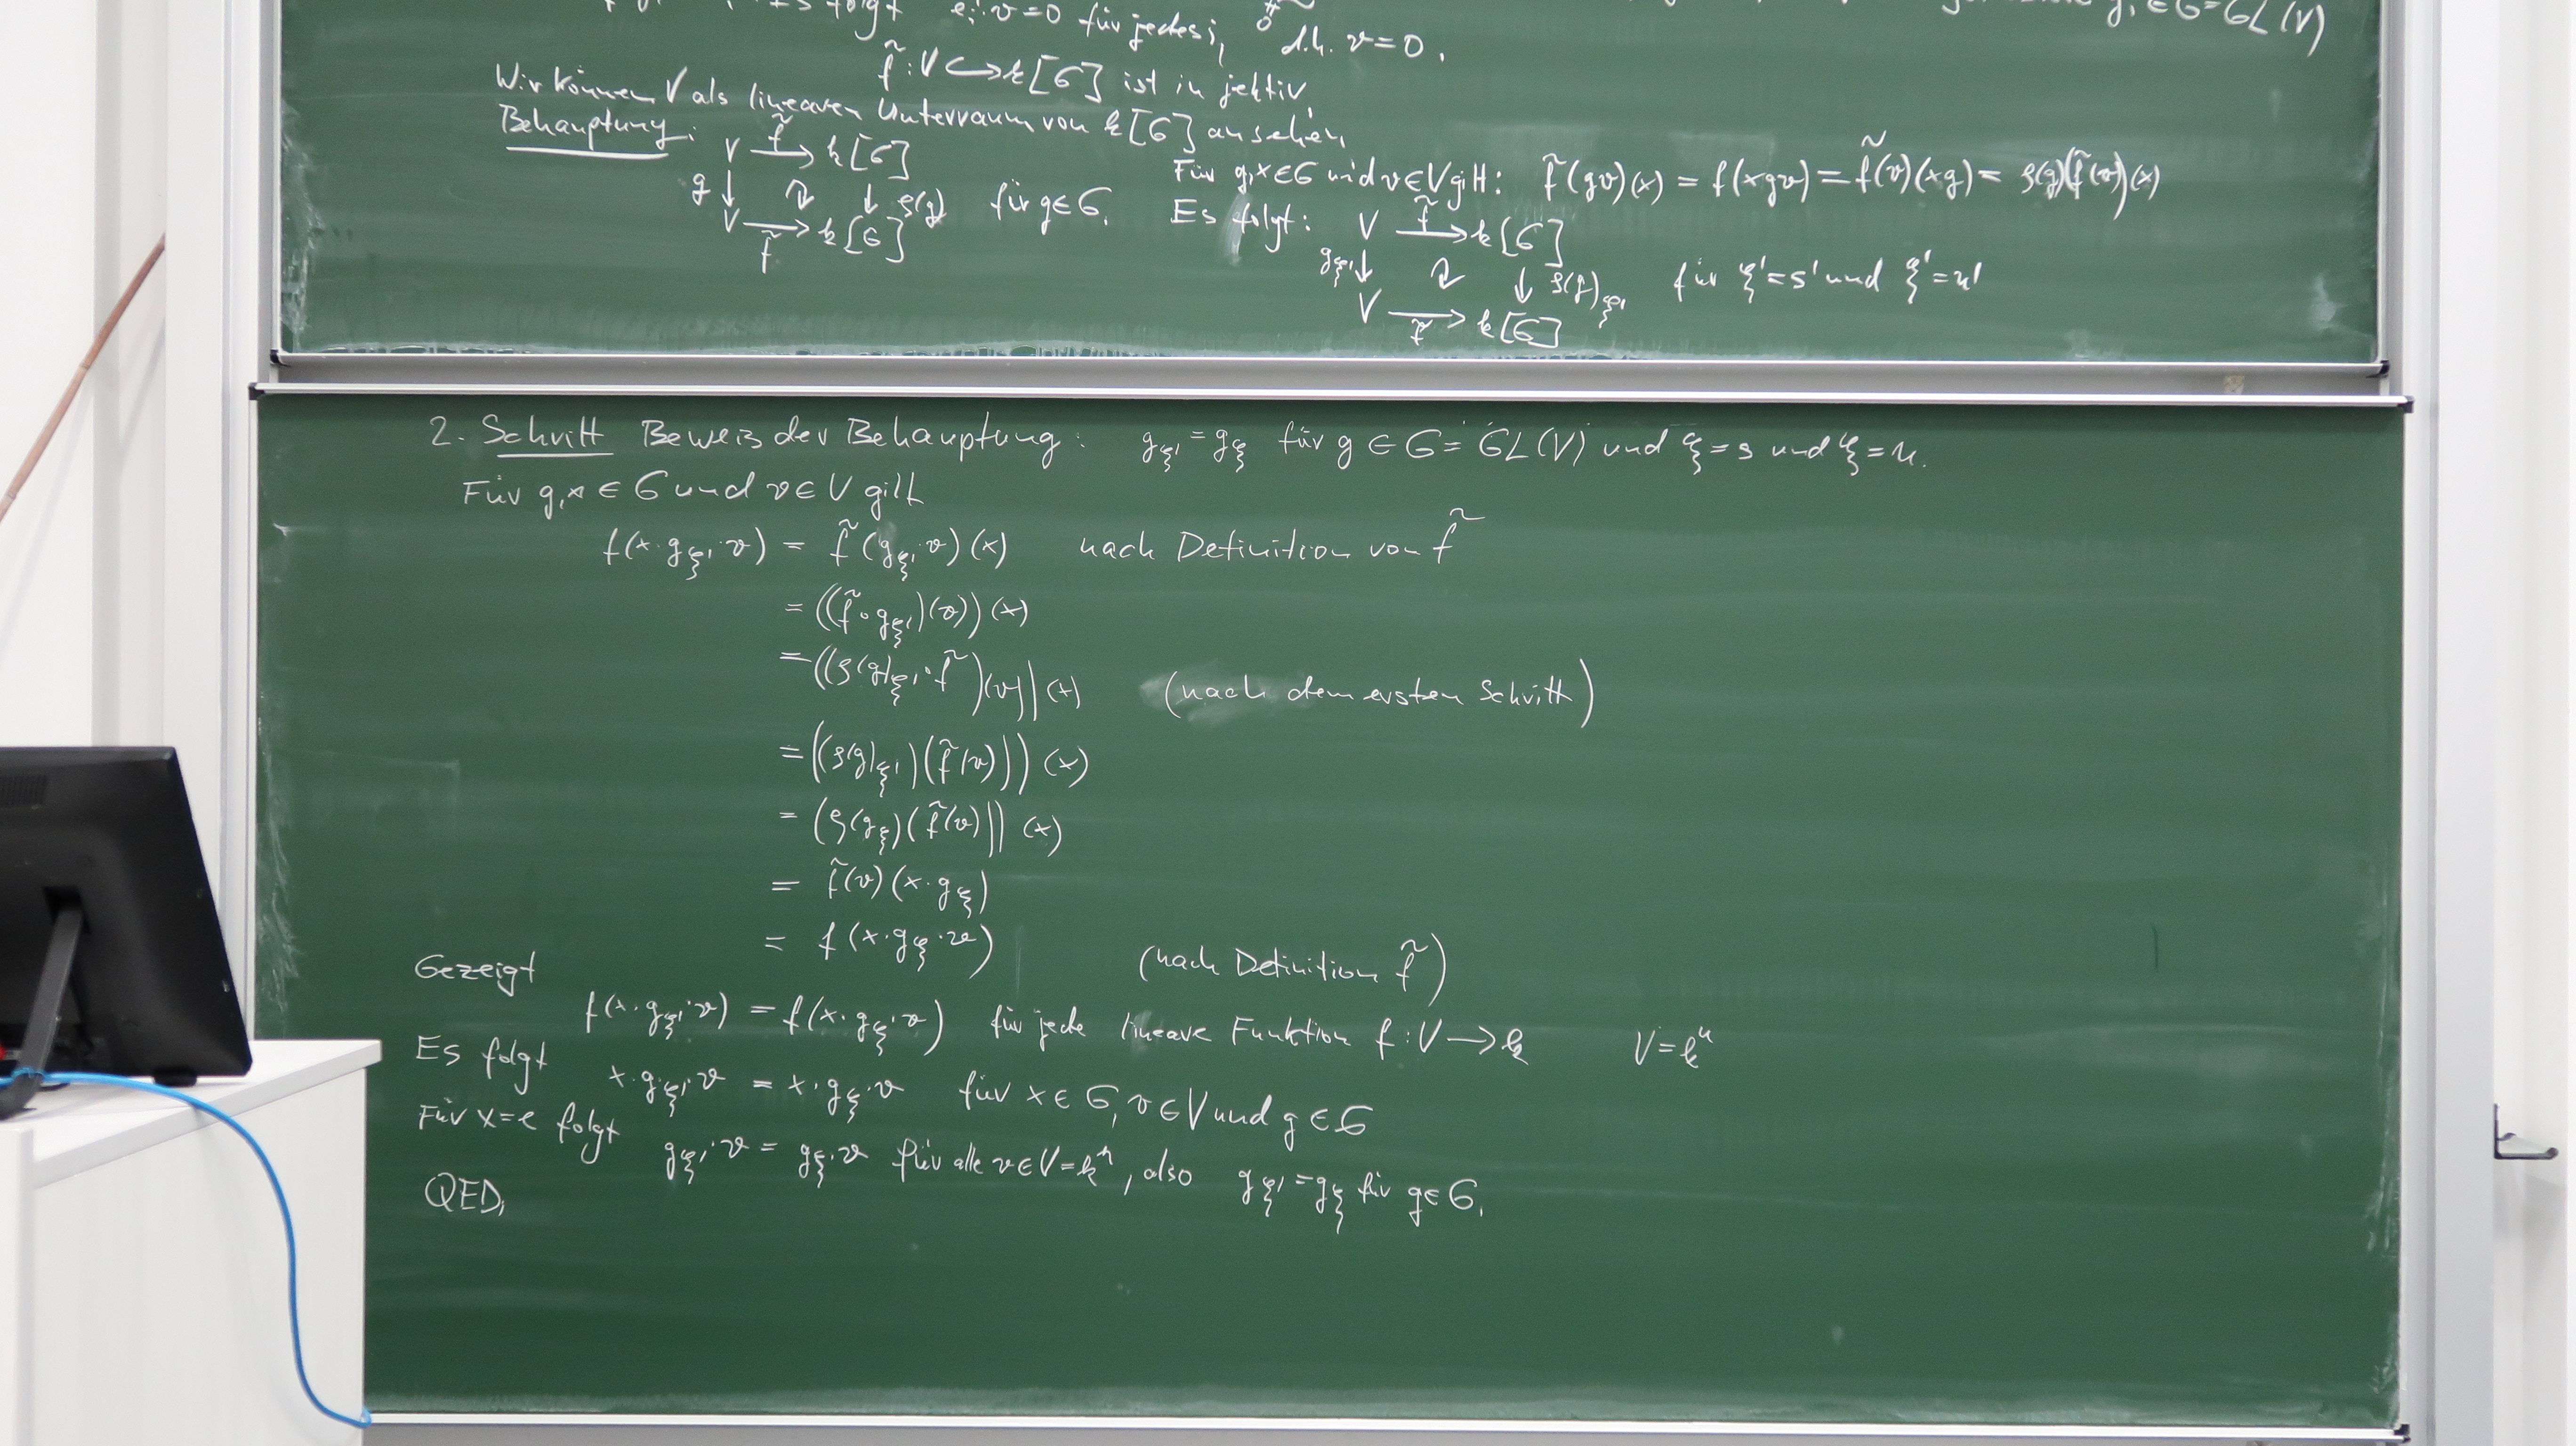 folgt eᵢ·v=0 für jedes i, d.h. v=0.
g, ∈ G=GL(V)
f̃ : V ↪ k[G] ist injektiv.
Wir können V als linearen Unterraum von k[G] ansehen.
Behauptung: V —f̃→ k[G]
g ↓ ↓ ρ(g) für g∈G.
V —f̃→ k[G]
Für g,x∈G und v∈V gilt: f̃(gv)(x) = f(xgv) = f̃(v)(xg) = ρ(g)(f̃(v))(x)
Es folgt: V —f̃→ k[G]
g_ξ' ↓ ↓ ρ(g)_ξ' für ξ'=s' und ξ'=u'
V —f̃→ k[G]
2. Schritt Beweis der Behauptung: g_ξ' = g_ξ für g ∈ G = GL(V) und ξ=s und ξ=u.
Für g,x ∈ G und v ∈ V gilt
f(x·g_ξ'·v) = f̃(g_ξ'·v)(x) nach Definition von f̃
= ((f̃∘g_ξ')(v))(x)
= ((ρ(g)_ξ'·f̃)(v))(x) (nach dem ersten Schritt)
= ((ρ(g)_ξ')(f̃(v)))(x)
= (ρ(g_ξ)(f̃(v)))(x)
= f̃(v)(x·g_ξ)
= f(x·g_ξ·v) (nach Definition f̃)
Gezeigt
f(x·g_ξ'·v) = f(x·g_ξ·v) für jede lineare Funktion f:V→k V=kⁿ
Es folgt x·g_ξ'·v = x·g_ξ·v für x∈G, v∈V und g∈G
Für x=e folgt g_ξ'·v = g_ξ·v für alle v∈V=kⁿ, also g_ξ' = g_ξ für g∈G.
QED.